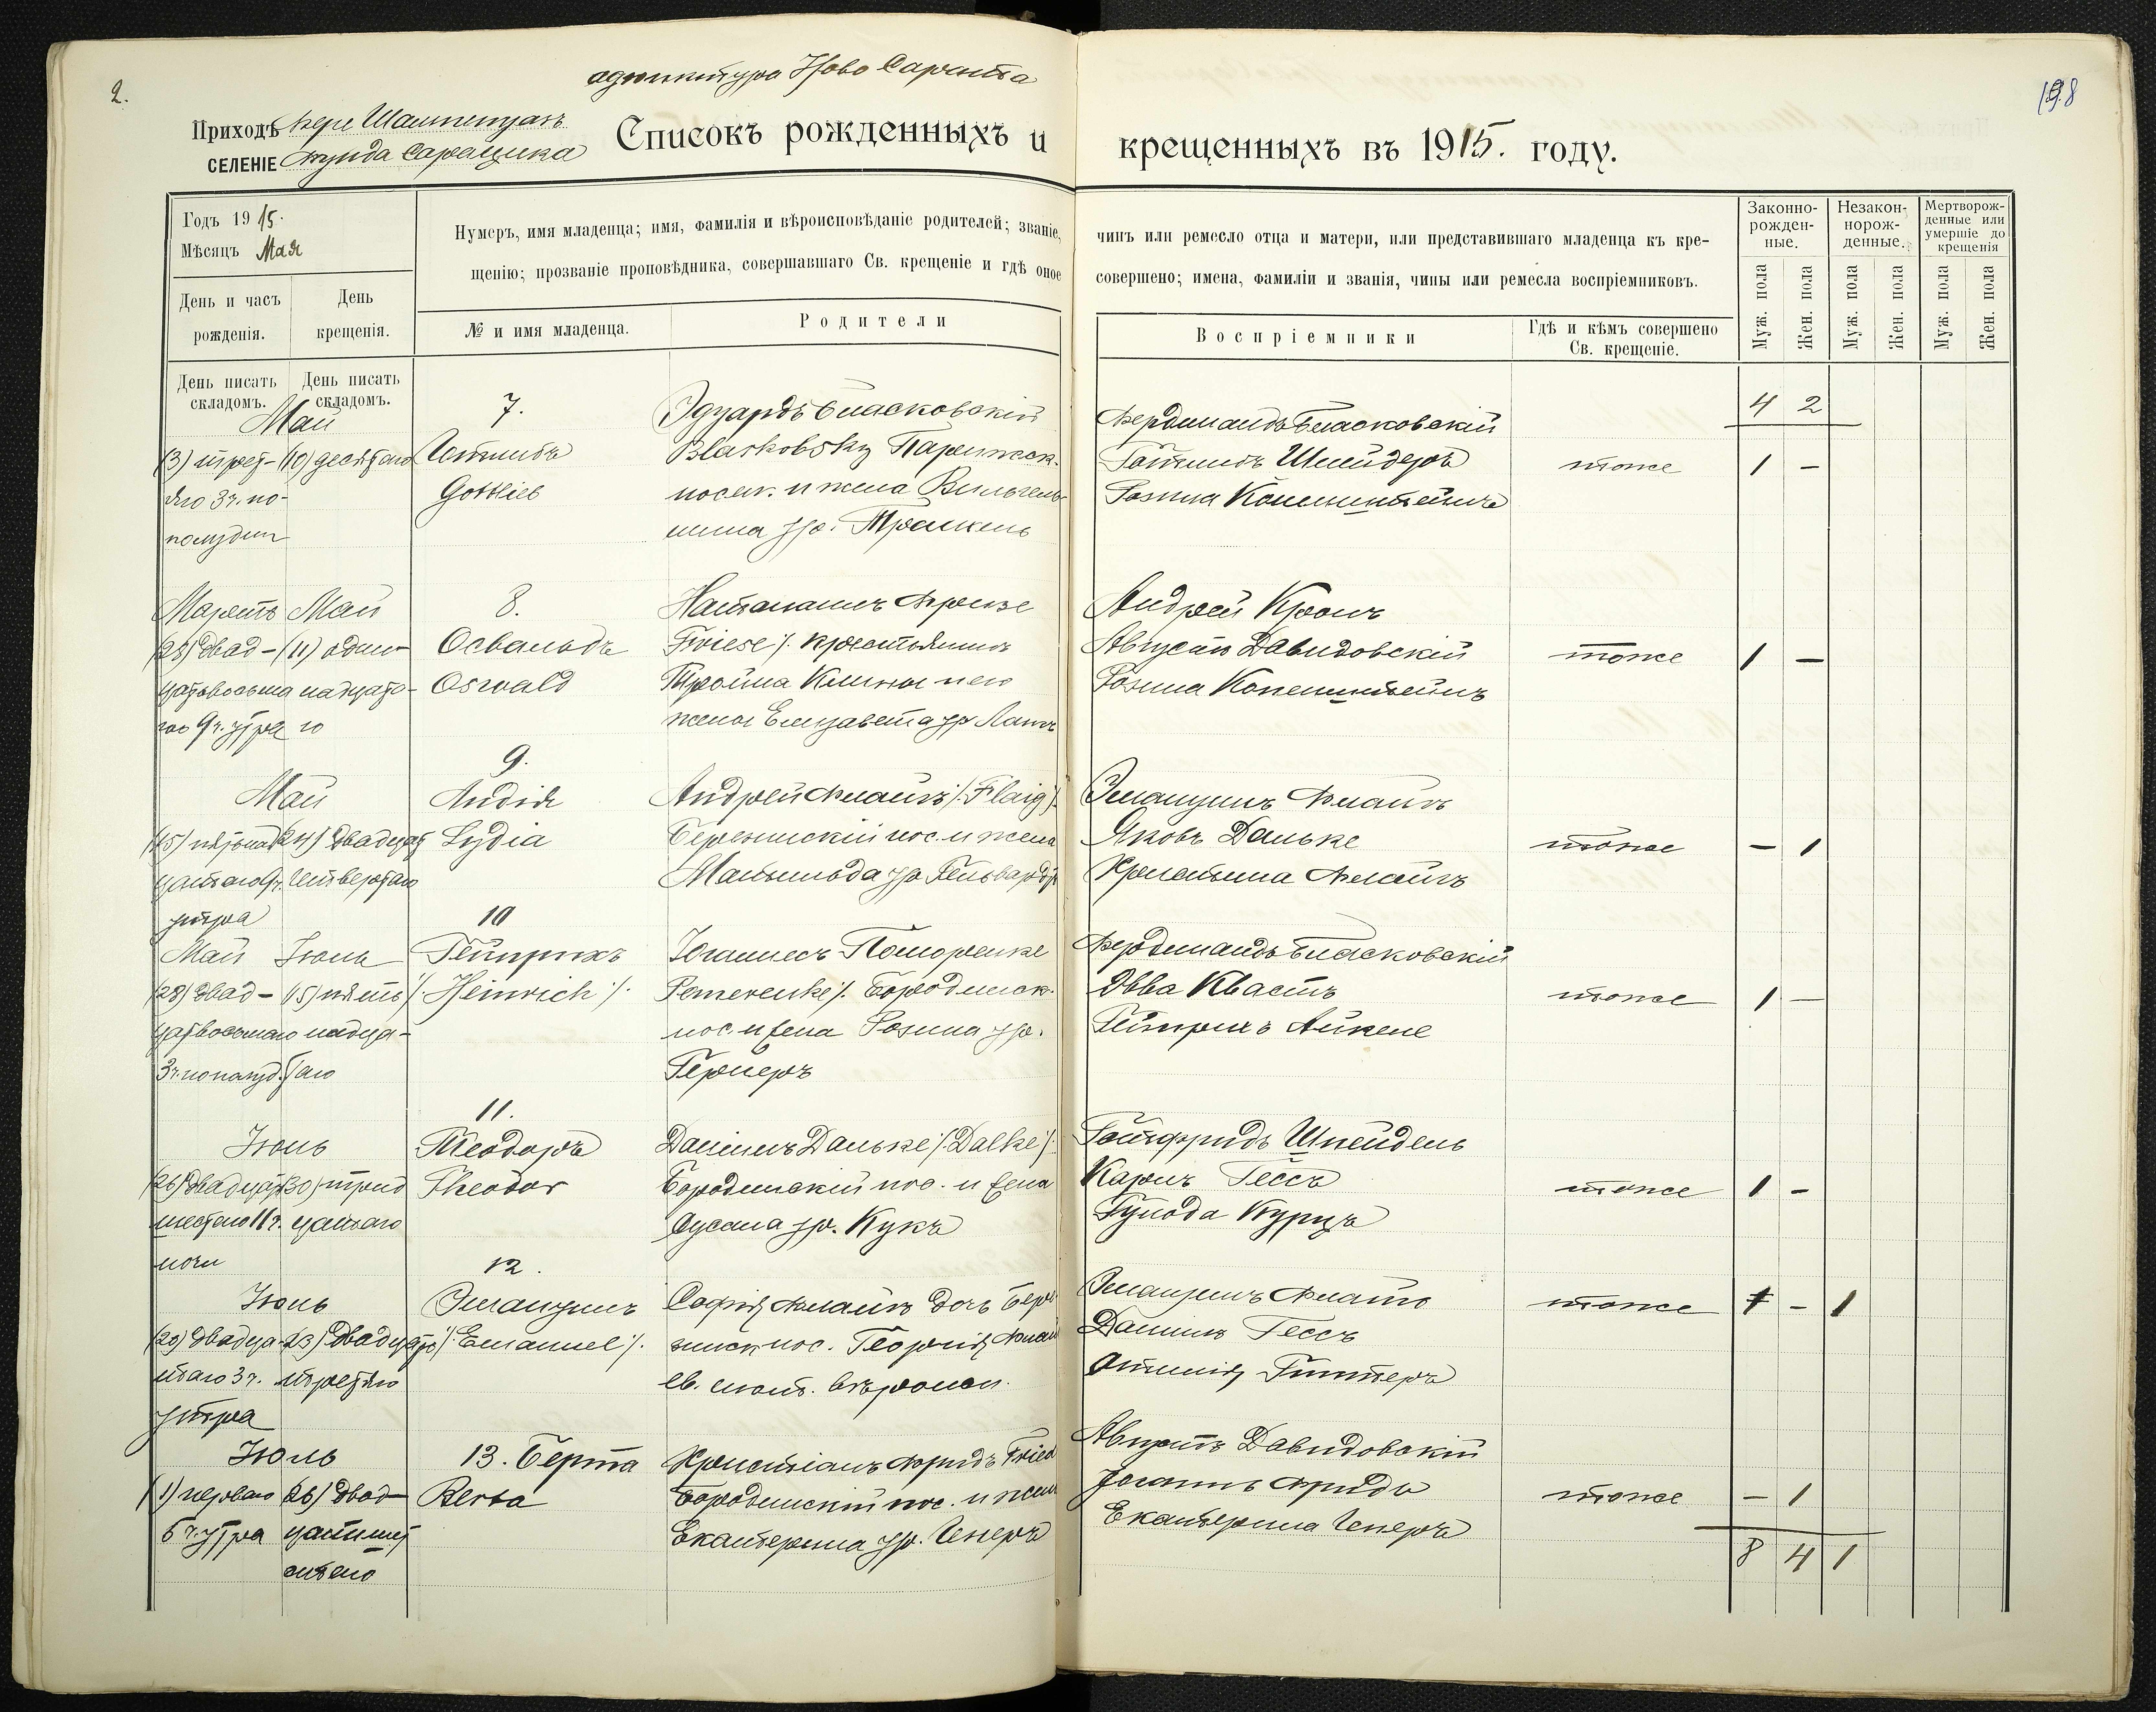 2.
адъюнктура Ново Сарата
198
Приходъ Фере Шампенуазъ
СЕЛЕНІЕ
Списокъ рожденныхъ и крещенныхъ въ 1915. году.
Годъ 1915.
Мѣсяцъ Мая
Нумеръ, имя младенца; имя, фамилія и вѣроисповѣданіе родителей; званіе, чинъ или ремесло отца и матери, или представившаго младенца къ кре-
щенію; прозваніе проповѣдника, совершавшаго Св. крещеніе и гдѣ оное совершено; имена, фамиліи и званія, чины или ремесла воспріемниковъ.
Законно-
рожден-
ные.
Незакон-
норож-
денные.
Мертворож-
денные или
умершіе до
крещенія
Муж. пола
Жен. пола
Муж. пола
Жен. пола
Муж. пола
Жен. пола
День и часъ
рожденія.
День
крещенія.
№ и имя младенца.
Родители
Воспріемники
Гдѣ и кѣмъ совершено
Св. крещеніе.
День писать
складомъ.
День писать
складомъ.
4 2
Май
(3) треть-
яго 3 ч. по-
полудни
(10) десятаго
7.
Готлибъ
Gottlieb
Эдуардъ Бласковскій
Blaskovsky Парижск.
посел. и жена Вильгель-
мина ур.
Фердинандъ Бласковскій
Готлибъ Шнейдеръ
Розина
тоже
1 –
Мартъ
(28) двад-
цатьвосьма
го 9 ч. утра
Май
(11) один-
надцата-
го
8.
Освальдъ
Oswald
Натанаилъ Фризе
Friese /. крестьянинъ
жена Елизавета ур.
Андрей Кронъ
Августъ Давидовскій
Розина
тоже
1 –
Май
(15) пятьнад-
цатаго 9 ч.
утра
(24) двадцать
четвертаго
9.
Лидія
Lydia
Андрей Флайгъ /. Flaig /.
Березинскій пос. и жена
Матильда ур.
Эмануилъ Флайгъ
Яковъ Дальке
Христина Флайгъ
тоже
– 1
Май
(28) двад-
цатьвосьмаго
3 ч. пополуд.
Іюнь
(15) пять
надца-
таго
10
Гейнрихъ
/. Heinrich /.
Іоганнесъ Поморенке
Pomerenke /. Бородинск.
пос. и жена Розина ур.
Гернеръ
Фердинандъ Бласковскій
Эвва Квастъ
Гейнрихъ
тоже
1 –
Іюнь
(26) двадцать
шестаго 11 ч.
ночи
(30) трид
цатаго
11.
Теодоръ
Theodor
Даніилъ Дальке /. Dalke /.
Бородинскій пос. и жена
Сусана ур. Кукъ
Готфридъ Шнейдель
Карлъ Гессъ
Гульда Курцъ
тоже
1 –
Іюль
(20) двадца-
таго 3 ч.
утра
(23) двадцать
третяго
12.
Эмануилъ
/. Emanuel /.
Софія Флайгъ дочь Бере
зинск. пос. Георгія Флай
ев. лют. вѣроисп.
Эмануилъ Флайгъ
Даніилъ Гессъ
Отилія
тоже
1 – 1
Іюль
(1) перваго
6 ч. утра
(26) двад-
цатишес
таго
13. Берта
Berta
Христіанъ Фридъ Fried
Бородинскій пос. и жена
Екатерина ур.
Августъ Давидовскій
Іоганнъ Фридъ
Екатерина
тоже
– 1
8 4 1